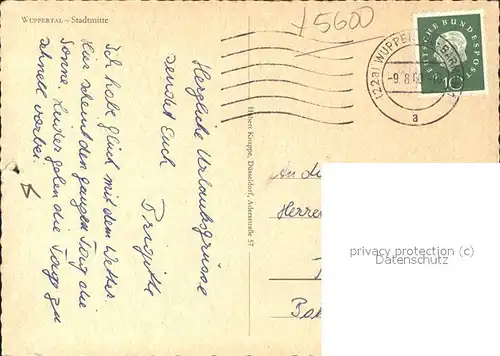 WUPPERTAL – Stadtmitte
/5600
Herzliche Urlaubsgrüsse
sendet Euch
Brigitte
Ich habe Glück mit dem Wetter.
Hier scheint den ganzen Tag die
Sonne. Leider gehen die Tage zu
schnell vorbei.
Hubert Knuppe, Düsseldorf, Adersstraße 57
(22a) WUPPER
-9.8.6
a
DEUTSCHE BUNDESPOST
10
An die
Herren
privacy protection (c)
Datenschutz